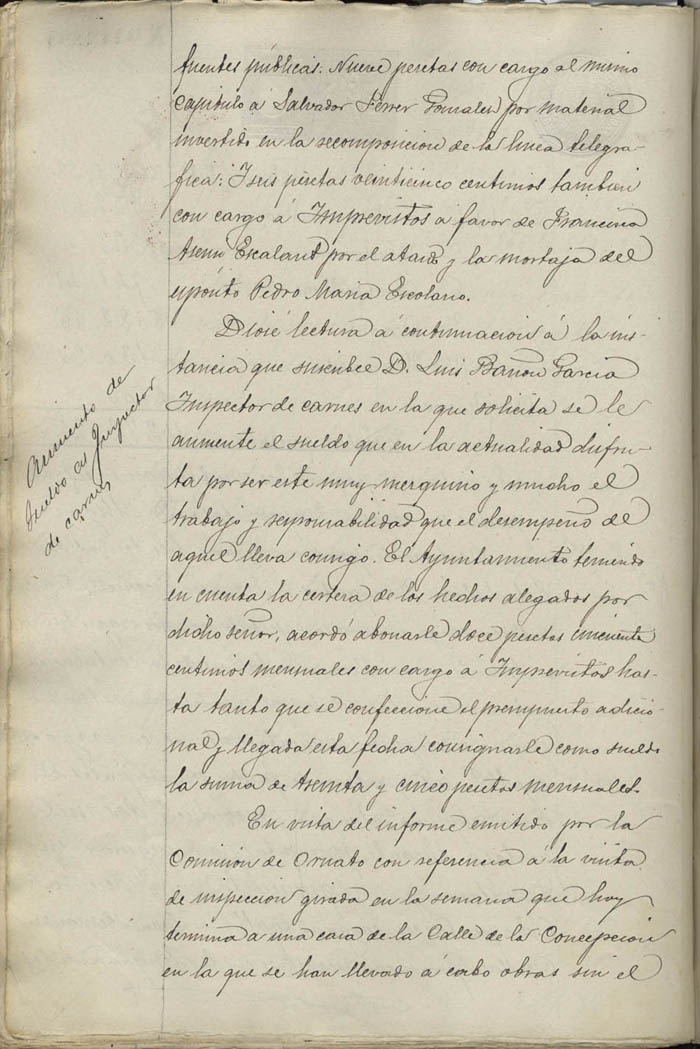 fuentes públicas. Nueve pesetas con cargo al mismo
capitulo á Salvador Ferrer Gonzalez por material
invertido en la recomposicion de la linea telegra-
fica: I seis pesetas veinticinco centimos tambien
con cargo á Imprevistos a favor de Francisca
Asensi Escolano por el ataud y la mortaja del
esposito Pedro Maria Escolano.
Dióse lectura á continuacion á la ins-
tancia que suscribe D. Luis Bañon Garcia
Inspector de carnes en la que solicita se le
aumente el sueldo que en la actualidad disfru-
ta por ser este muy mezquino y mucho el
trabajo y responsabilidad que el desempeño de
aquel lleva consigo. El Ayuntamiento teniendo
en cuenta la certeza de los hechos alegados por
dicho señor, acordó abonarle doce pesetas cincuenta
centimos mensuales con cargo á Imprevistos has-
ta tanto que se confeccione el presupuesto adicio-
nal y llegada esta fecha consignarle como sueldo
la suma de treinta y cinco pesetas mensuales.
Aumento de
sueldo al Inspector
de carnes
En vista del informe emitido por la
Comision de Ornato con referencia á la visita
de inspeccion girada en la semana que hoy
termina a una casa de la Calle de la Concepcion
en la que se han llevado á cabo obras sin el